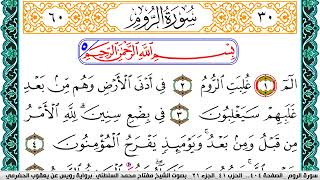 ٦٠ سُورَةُ الرُّومِ ٣٠
بِسْمِ اللَّهِ الرَّحْمَٰنِ الرَّحِيمِ
الٓمٓ ١ غُلِبَتِ الرُّومُ ٢ فِي أَدْنَى الْأَرْضِ وَهُم مِّن بَعْدِ
غَلَبِهِمْ سَيَغْلِبُونَ ٣ فِي بِضْعِ سِنِينَ ۗ لِلَّهِ الْأَمْرُ
مِن قَبْلُ وَمِن بَعْدُ ۚ وَيَوْمَئِذٍ يَفْرَحُ الْمُؤْمِنُونَ ٤
سورة الروم الصفحة ٤٠٤ الحزب ٤١ الجزء ٢١ بصوت الشيخ مفتاح محمد السلطني برواية رويس عن يعقوب الحضرمي